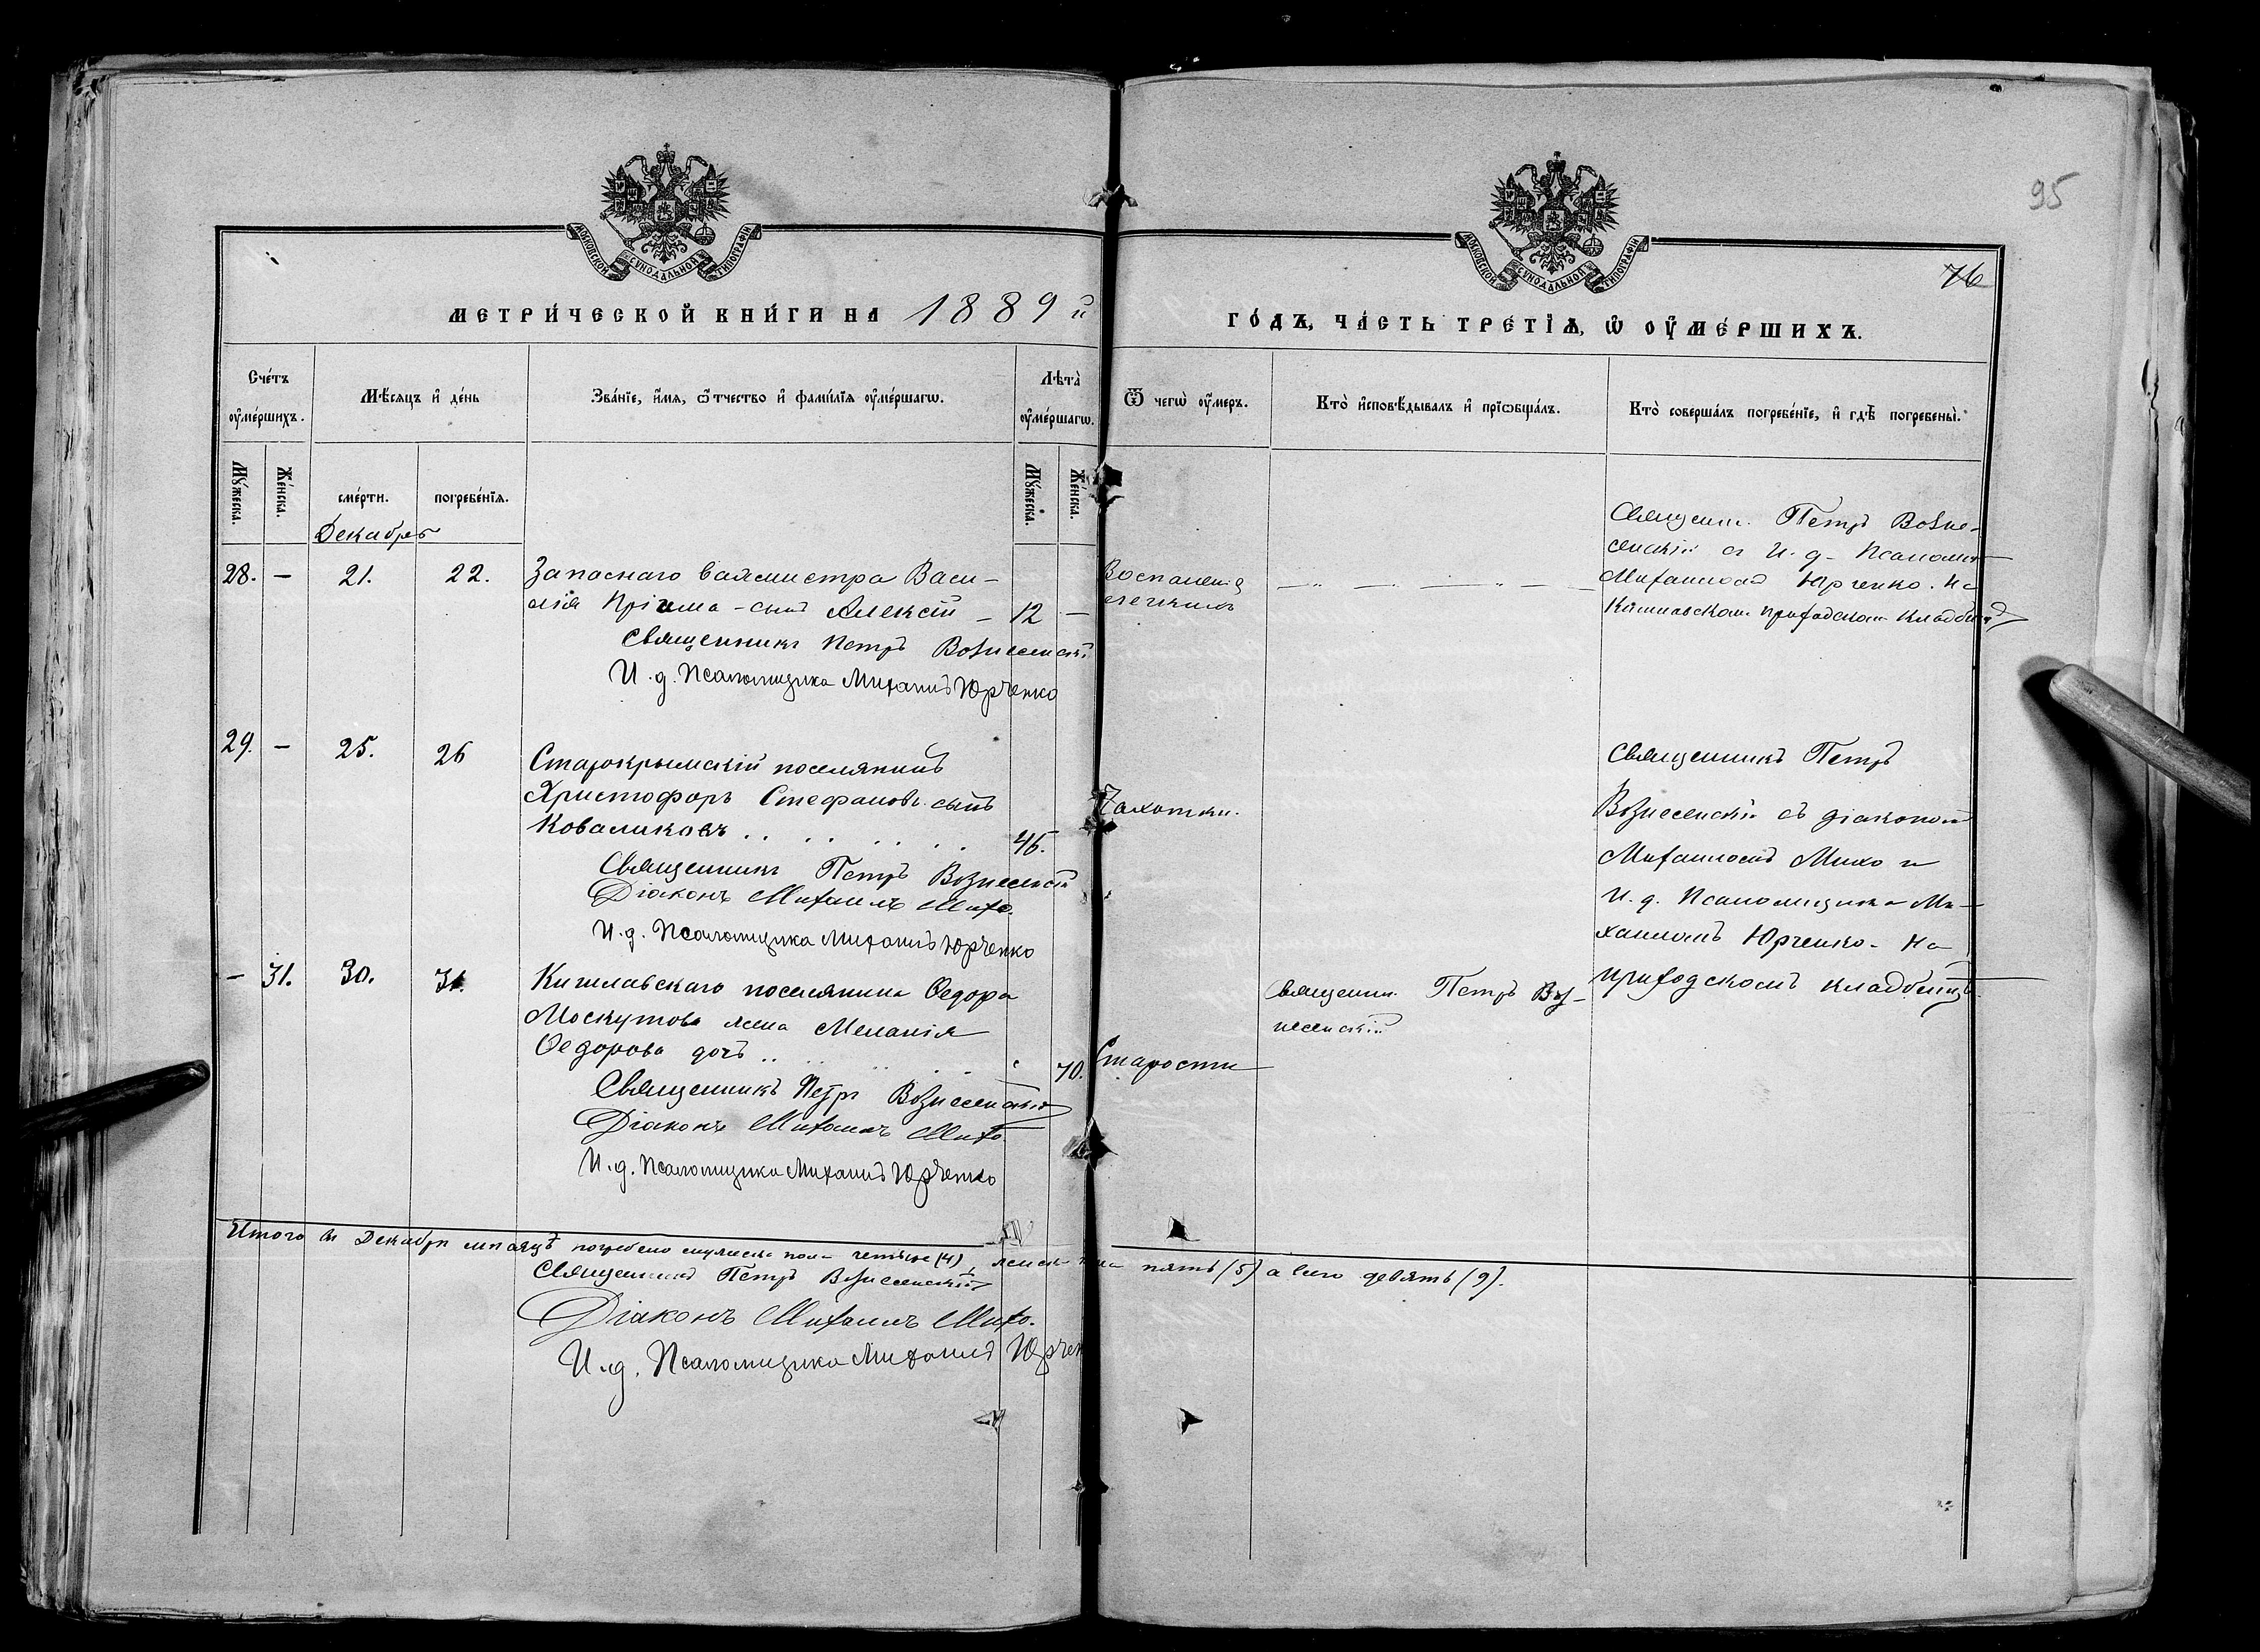 95
76
МОСКОВСКОЙ СѴНОДАЛЬНОЙ ТИПОГРАФІИ
МОСКОВСКОЙ СѴНОДАЛЬНОЙ ТИПОГРАФІИ
МЕТРИ́ЧЕСКОЙ КНИ́ГИ НА 1889 й
ГО́ДЪ, ЧА́СТЬ ТРЕ́ТІѦ, Ѡ҆ ОУ҆МЕ́РШИХЪ.
Сче́тъ оу҆ме́ршихъ.
Мѣ́сяцъ и҆ де́нь
Зва́нїе, и҆́мя, ѻ҆́тчество и҆ фамѝлїя оу҆ме́ршагѡ.
Лѣта̀ оу҆ме́ршагѡ.
Ѿ чегѡ̀ оу҆́меръ.
Кто̀ и҆сповѣ́дывалъ и҆ прїѡбща́лъ.
Кто̀ соверша́лъ погребе́нїе, и҆ гдѣ̀ погребены̀.
Мꙋ́жеска.
Же́нска.
сме́рти.
погребе́нїя.
Мꙋ́жеска.
Же́нска.
Декабрь
28. — 21. 22. Запаснаго вахмистра Васи-
лія Пріима - сынъ Алексій — 12 —
Священникъ Петръ Вознесенскій
И. д. Псаломщика Михаилъ Юрченко
Воспаленія
Священ. Петръ Возне-
сенскій съ И. д. Псаломщ
Михаиломъ Юрченко. На
Кишлавском приходском кладбищѣ
29. — 25. 26 Старокрымскій поселянинъ
Христофоръ Стефановъ сынъ
Коваликовъ . . . . . . 46.
Священникъ Петръ Вознесенскій
Діаконъ Михаилъ Михо.
И. д. Псаломщика Михаилъ Юрченко
Чахотки.
Священникъ Петръ
Вознесенскій съ діакономъ
Михаиломъ Михо и
И. д. Псаломщика Ми-
хаиломъ Юрченко - На
приходскомъ кладбищѣ.
— 31. 30. 31. Кишлавскаго поселянина Ѳедора
Москутова жена Меланія
Ѳедорова дочь . . . . . 70.
Священникъ Петръ Вознесенскій
Діаконъ Михаилъ Михо.
И. д. Псаломщика Михаилъ Юрченко
Старости
Священ. Петръ Воз-
несенскій
Итого въ Декабрѣ мѣсяцѣ погребено мужеска пола четыре (4), женска пола пять (5) а всего девять (9).
Священникъ Петръ Вознесенскій
Діаконъ Михаилъ Михо.
И. д. Псаломщика Михаилъ Юрчен